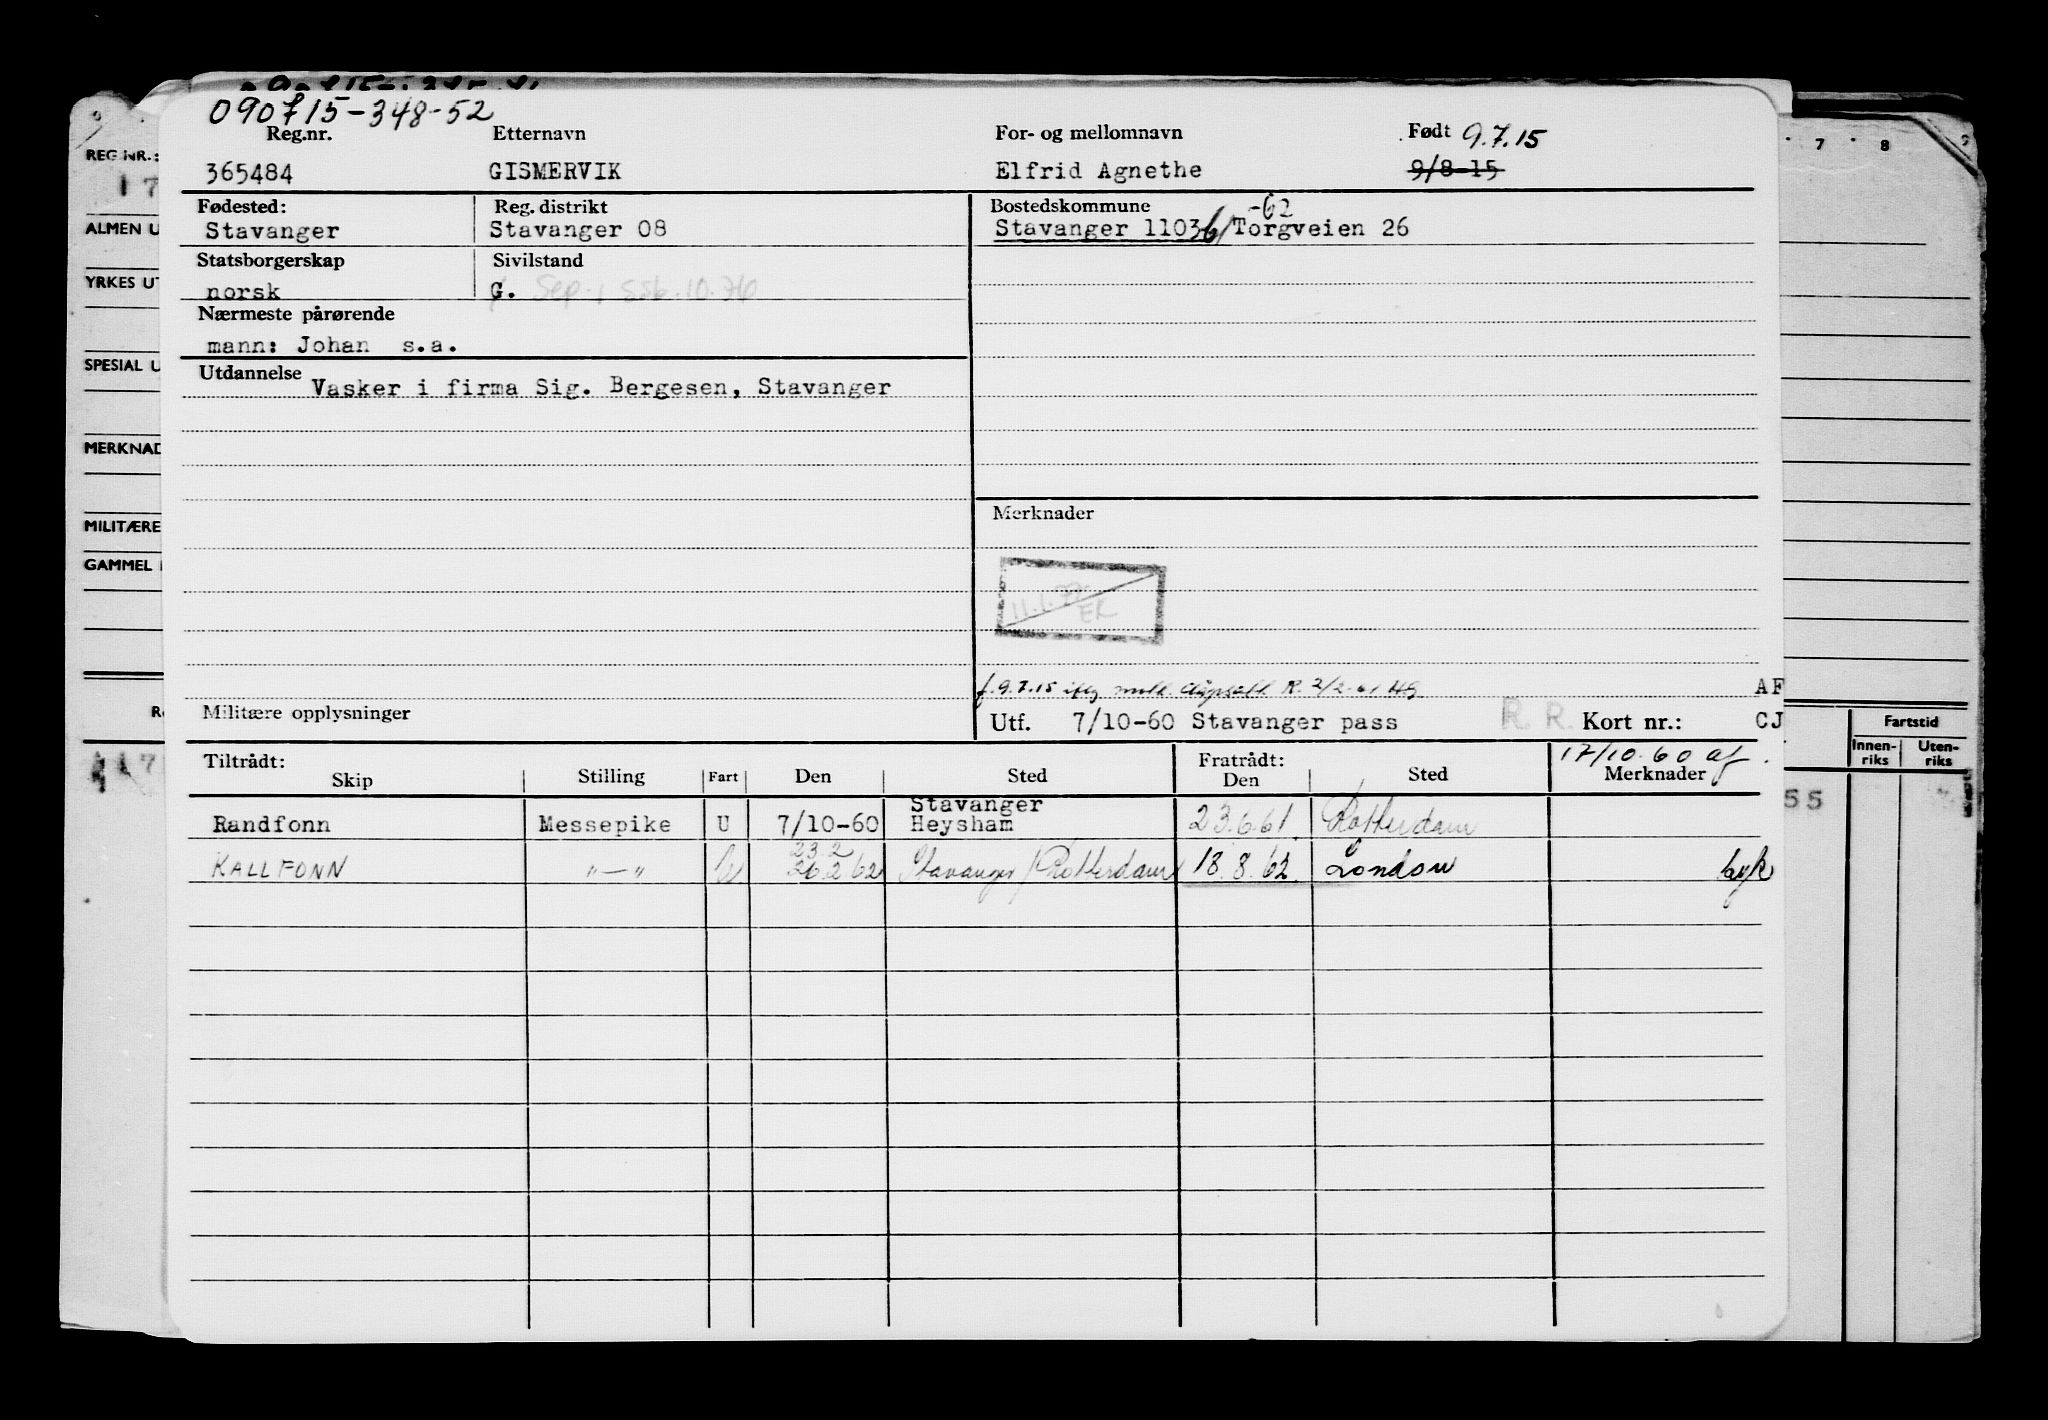 090715-348-52
Reg.nr. Etternavn For- og mellomnavn Født 9.7.15
365484 GISMERVIK Elfrid Agnethe 9/8-15
Fødested: Reg. distrikt Bostedskommune -62
Stavanger Stavanger 08 Stavanger 1103 6/ Torgveien 26
Statsborgerskap Sivilstand
norsk G. Sep. i ssb. 10.76
Nærmeste pårørende
mann: Johan s.a.
Utdannelse
Vasker i firma Sig. Bergesen, Stavanger
Merknader
ER
f. 9.7.15 iflg. R. 2/2-61 HG AF
Militære opplysninger
Utf. 7/10-60 Stavanger pass R. R. Kort nr.: CJ
Tiltrådt: Fratrådt: 17/10.60 af.
Skip Stilling Fart Den Sted Den Sted Merknader
Stavanger
Randfonn Messepike U 7/10-60 Heysham 23.6.61. Rotterdam
23.2
KALLFONN "—" U 26.2 62 Stavanger/Rotterdam 18.8.62. London
REG NR.:
17
ALMEN U
YRKES UT
SPESIAL U
MERKNAD
MILITÆRE
GAMMEL
7 8 9
Fartstid
Innen-riks Uten-riks
55